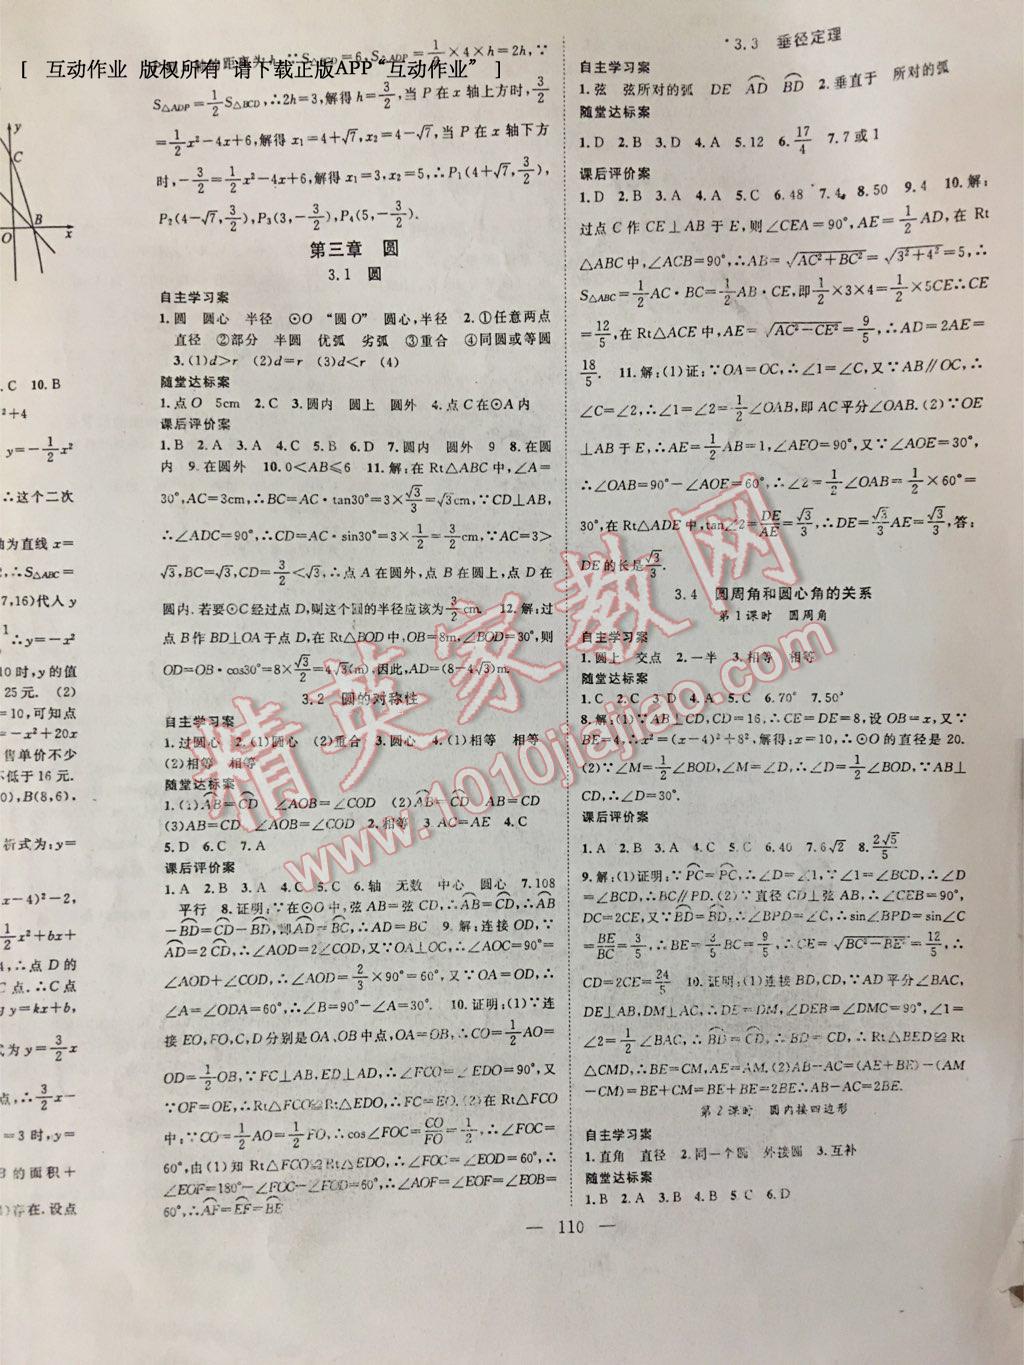 [ 互动作业 版权所有 请下载正版APP“互动作业” ]
y
C
B
O
x
.C 10.B
²+4
y=-1/2x²
∴这个二次
轴为直线 x=
2,∴S△ABC=
(7,16)代人 y
∴y=-x²
10时,y 的值
25元. (2)
=10,可知点
=-x²+20x
售单价不少
不低于 16 元.
0),B(8,6).
析式为:y=
(x-4)²-2,
1/2x²+bx+
4,∴点 D 的
C 点.∴C 点
y=kx+b,
式为 y=3/2x
点,∴3/2x-
=3 时,y=
B 的面积+
)存在.设点
的距离为 h,∵S△BCD=6,S△ADP=1/2×4×h=2h,∵
S△ADP=1/2S△BCD,∴2h=3,解得 h=3/2,当 P 在 x 轴上方时,3/2
=1/2x²-4x+6,解得 x₁=4+√7,x₂=4-√7,当 P 在 x 轴下方
时,-3/2=1/2x²-4x+6,解得 x₁=3,x₂=5,∴P₁(4+√7,3/2),
P₂(4-√7,3/2),P₃(3,-3/2),P₄(5,-3/2).
第三章 圆
3.1 圆
自主学习案
1.圆 圆心 半径 ⊙O “圆O” 圆心,半径 2.①任意两点
直径 ②部分 半圆 优弧 劣弧 ③重合 ④同圆或等圆
3.(1)d>r (2)d=r (3)d<r (4)
随堂达标案
1.点O 5cm 2.C 3.圆内 圆上 圆外 4.点C在⊙A内
课后评价案
1.B 2.A 3.A 4.C 5.B 6.D 7.圆内 圆外 9 8.在圆
内 9.在圆外 10.0<AB≤6 11.解:在Rt△ABC中,∠A=
30°,AC=3cm,∴BC=AC·tan30°=3×√3/3=√3cm,∵CD⊥AB,
∴∠ADC=90°,∴CD=AC·sin30°=3×1/2=3/2cm,∵AC=3>
√3,BC=√3,CD=3/2<√3,∴点 A 在圆外,点 B 在圆上,点 D 在
圆内.若要⊙C 经过点 D,则这个圆的半径应该为3/2cm. 12.解:过
点 B 作 BD⊥OA 于点 D,在 Rt△BOD 中,OB=8m,∠BOD=30°,则
OD=OB·cos30°=8×√3/2=4√3(m).因此,AD=(8-4√3)m.
3.2 圆的对称性
自主学习案
1.过圆心 2.(1)圆心 (2)重合 3.圆心 4.(1)相等 相等
(2)相等 相等
随堂达标案
1.(1)AB=CD ∠AOB=∠COD (2)AB=CD AB=CD
(3)AB=CD ∠AOB=∠COD 2.相等 3.AC=AE 4.C
5.D 6.C 7.A
课后评价案
1.A 2.B 3.A 4.C 5.C 6.轴 无数 中心 圆心 7.108
平行 8.证明:∵在⊙O中,弦AB=弦CD,∴AB=CD,∴AB
-BD=CD-BD,即AD=BC,∴AD=BC 9.解:连接 OD,∵
AD=2CD,∴∠AOD=2∠COD,又∵OA⊥OC,∴∠AOC=90°=
∠AOD+∠COD,∴∠AOD=2/3×90°=60°,又∵OA=OD,∴
∠A=∠ODA=60°,∴∠B=90°-∠A=30°. 10.证明:(1)∵连
接EO,FO,C,D分别是OA、OB中点,OA=OB,∴CO=1/2AO=
OD=1/2OB,∵FC⊥AB,ED⊥AD,∴∠FCO=∠EDO=90°,又
∵OF=OE,∴Rt△FCO≌Rt△EDO,∴FC=EO.(2)在Rt△FCO
中:∵CO=1/2AO=1/2FO,∴cos∠FOC=CO/FO=1/2,∴∠FOC=
60°,由(1)知 Rt△FCO≌Rt△EDO,∴∠FOC=∠EOD=60°,∴
∠EOF=180°-∠FOC-∠FOD=60°,∴∠AOF=∠EOF=∠EOB=
60°,∴AF=EF=BE
3.3 垂径定理
自主学习案
1.弦 弦所对的弧 DE AD BD 2.垂直于 所对的弧
随堂达标案
1.D 2.B 3.D 4.A 5.12 6.17/4 7.7或1
课后评价案
1.D 2.B 3.A 4.A 5.C 6.48 7.4 8.50 9.4 10.解:
过点 C 作 CE⊥AB 于 E,则∠CEA=90°,AE=1/2AD,在 Rt
△ABC中,∠ACB=90°,∴AB=√AC²+BC²=√3²+4²=5,∴
S△ABC=1/2AC·BC=1/2AB·CE,即1/2×3×4=1/2×5CE∴CE
=12/5,在Rt△ACE中,AE=√AC²-CE²=9/5,∴AD=2AE=
18/5. 11.解:(1)证:∵OA=OC,∴∠1=∠C,又∵AB∥OC,∴
∠C=∠2,∴∠1=∠2=1/2∠OAB,即AC平分∠OAB.(2)∵OE
⊥AB于E,∴AE=1/2AB=1,∠AFO=90°,又∵∠AOE=30°,
∴∠OAB=90°-∠AOE=60°,∴∠2=1/2∠OAB=1/2×60°=
30°,在Rt△ADE中,tan∠2=DE/AE=√3/3,∴DE=√3/3AE=√3/3,答:
DE的长是√3/3.
3.4 圆周角和圆心角的关系
第1课时 圆周角
自主学习案
1.圆上 交点 2.一半 3.相等 相等
随堂达标案
1.C 2.C 3.D 4.A 5.C 6.70° 7.50°
8.解:(1)∵AB⊥CD,CD=16,∴CE=DE=8,设OB=x,又∵
BE=4,∴x²=(x-4)²+8²,解得:x=10,∴⊙O的直径是20.
(2)∵∠M=1/2∠BOD,∠M=∠D,∴∠D=1/2∠BOD,∵AB⊥
CD,∴∠D=30°.
课后评价案
1.A 2.B 3.A 4.C 5.C 6.40 7.6√2 8.2√5/5
9.解:(1)证明:∵PC=PC,∴∠D=∠1,∵∠1=∠BCD,∴∠D
=∠BCD,∴BC∥PD.(2)∵直径CD⊥弦AB,∴∠CEB=90°,
DC=2CE,又∵BD=BD,∴∠BPD=∠C,∴sin∠BPD=sin∠C
=BE/BC=3/5,∴BE=3/5BC=9/5,∴CE=√BC²-BE²=12/5,∴
CD=2CE=24/5 10.证明:(1)连接BD,CD,∵AD平分∠BAC,
DE⊥AB,DM⊥AC,∴DE=DM,∠DEB=∠DMC=90°,∠1=
∠2=1/2∠BAC,∴BD=CD,∴BD=CD,∴Rt△BED≌Rt
△CMD,∴BE=CM,AE=AM.(2)AB-AC=(AE+BE)-(AM
-CM)=BE+CM=BE+BE=2BE∴AB-AC=2BE.
第2课时 圆内接四边形
自主学习案
1.直角 直径 2.同一个圆 外接圆 3.互补
随堂达标案
1.B 2.A 3.B 4.B 5.C 6.D
— 110 —
精英家教网
www.1010jiajiao.com